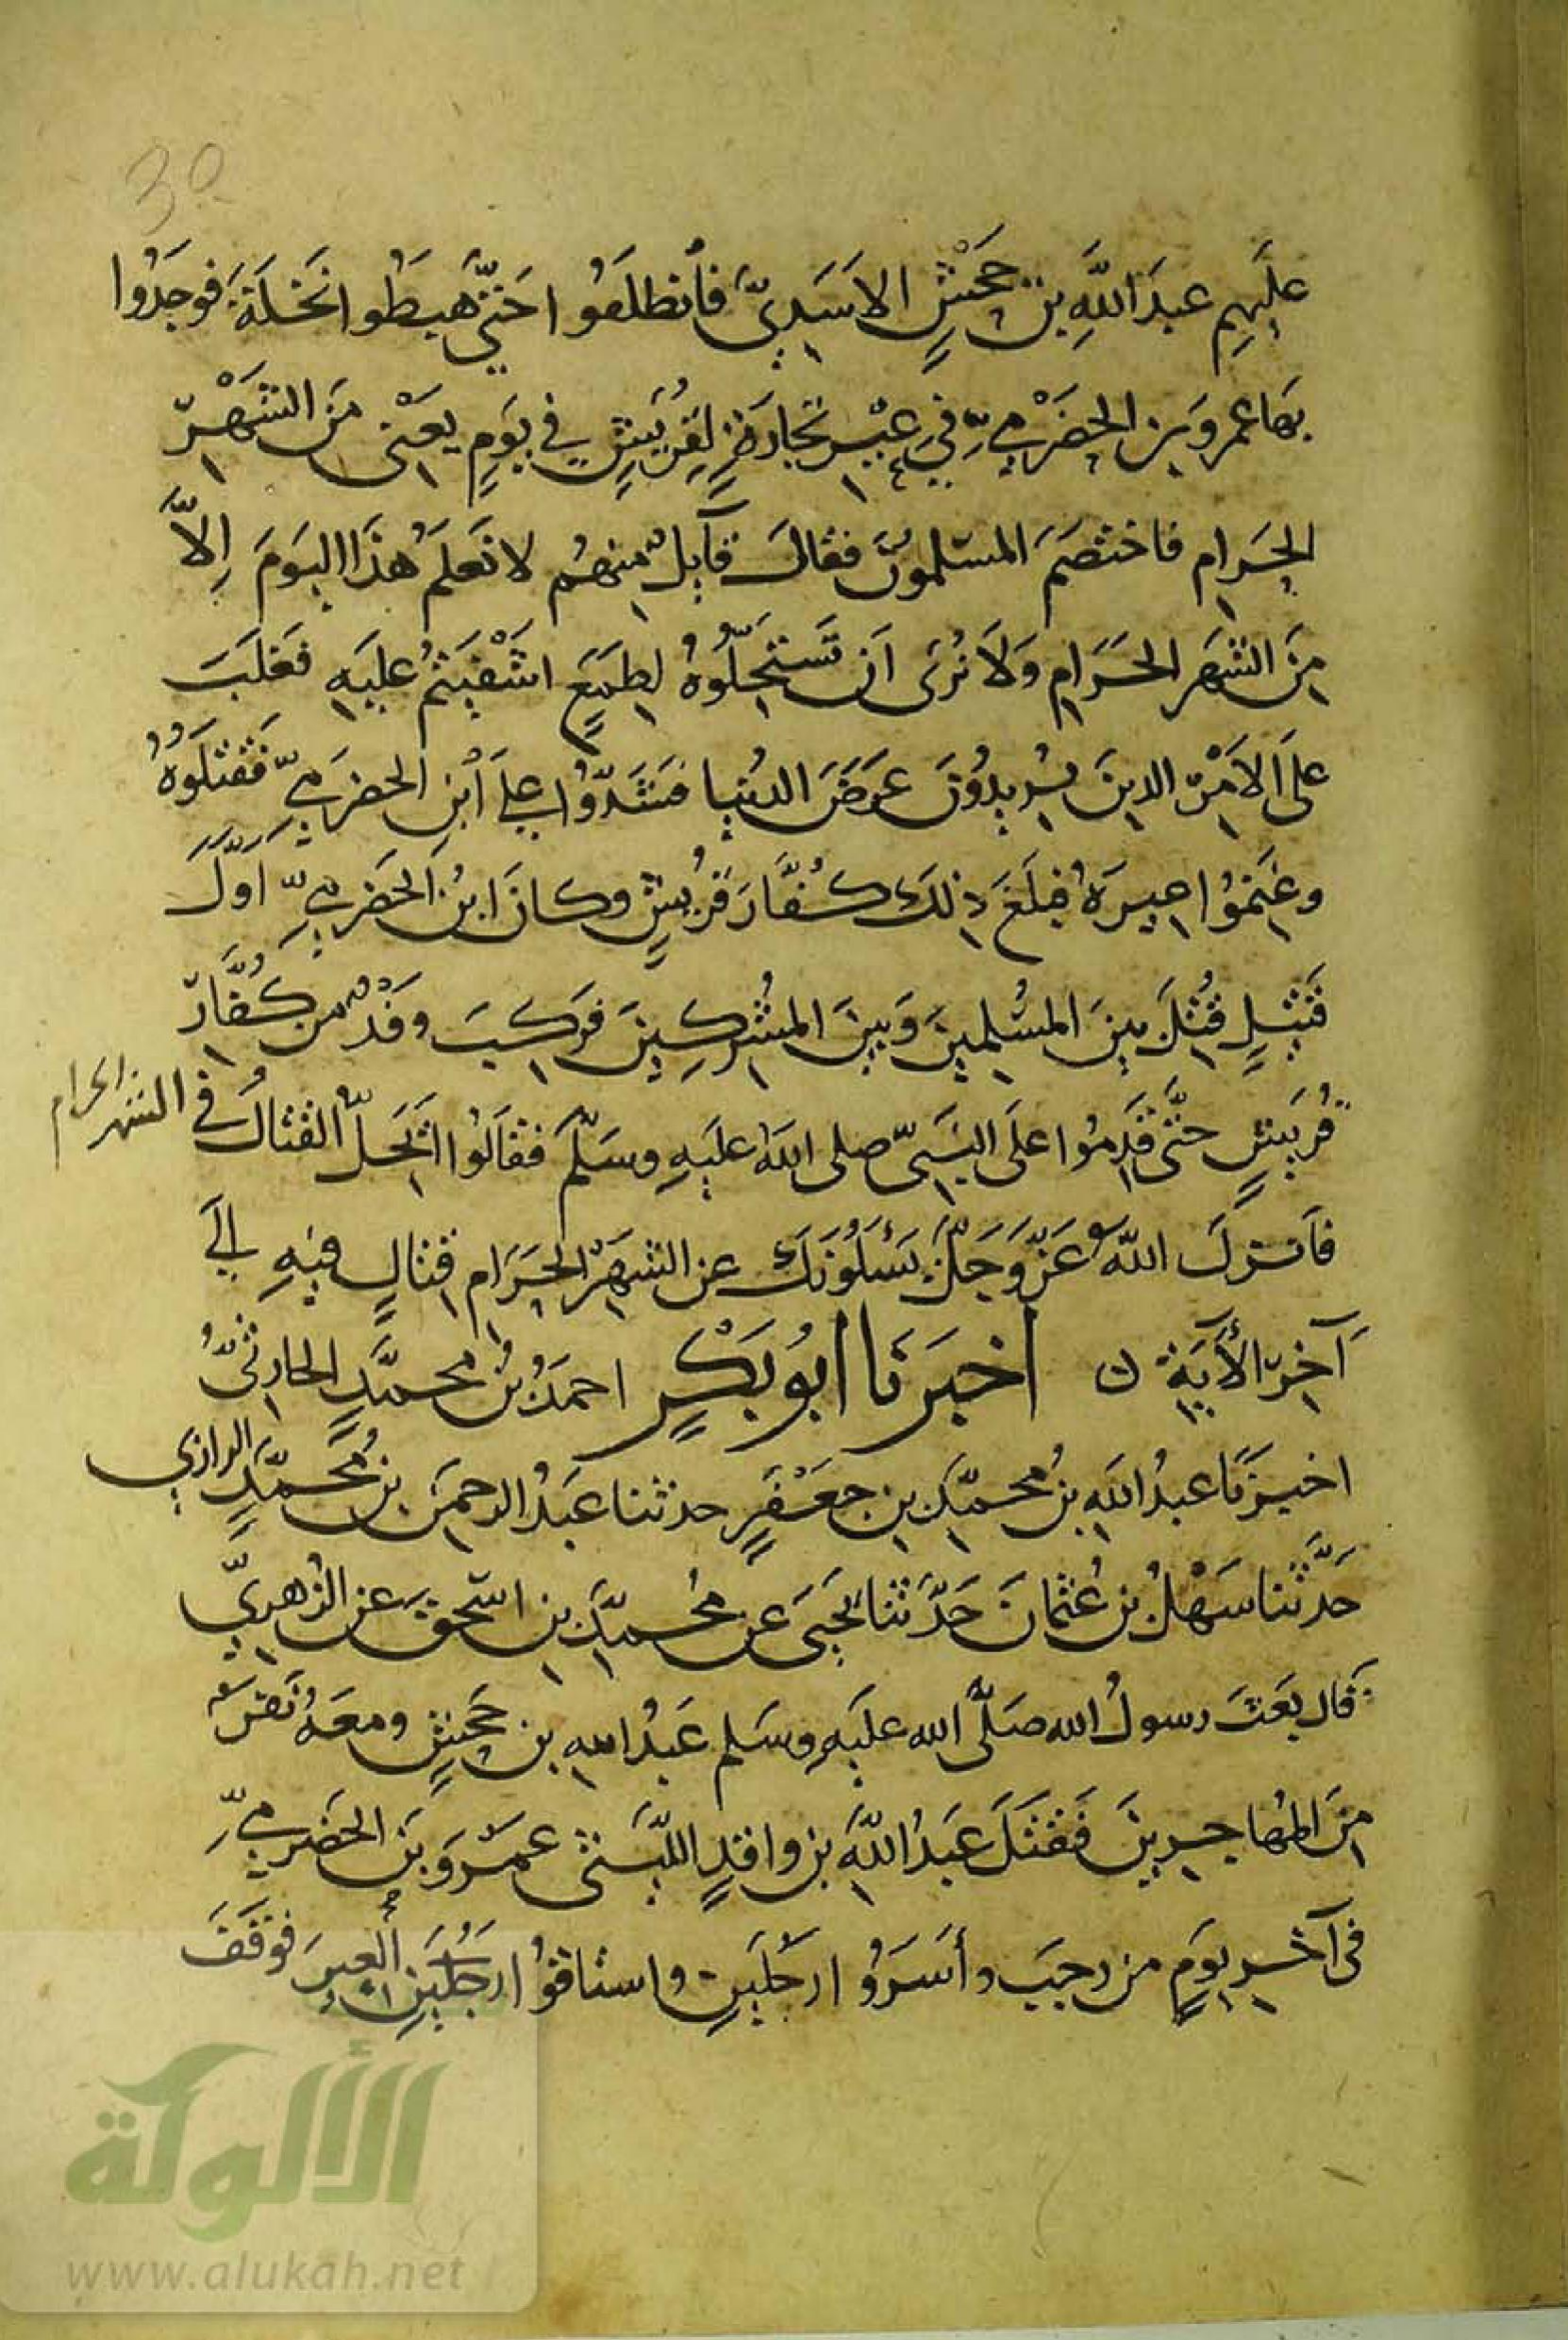 30
عليهم عبدَ اللهِ بن جحْشٍ الاسَديّ فانطلقُوا حتّى هبَطُوا نخلَةَ فوجَدُوا
بهَا عمرو بن الحضرْميّ في عِيْرِ تجارَةٍ لقُرَيشٍ في يَومٍ بقى من الشهْرِ
الحَرامِ فاختصَمَ المسلمُونَ فقالَ قآيلٌ منهُم لا نَعلَمُ هذَا اليَومَ اِلاَّ
مِنَ الشهَر الحَرَامِ وَلاَ نُرى اَن تَستَحِلّوهُ لِطَمَعٍ اشْفَيتُم عليَهِ فغلَبَ
علَى الاَمْرِ الذينَ يُريدُونَ عرَضَ الدُنيا فشَدّوُا على اَبْنِ الحضرَميّ فقتلَوُهُ
وغنَمُوُا عِيرَهُ فبلَغَ ذلكَ كُفَّارَ قُريشٍ وكانَ ابنُ الحَضرَميّ اَوّلَ
قَتيلٍ قُتلَ بينَ المسُلمينَ وَبينَ المشُركِينَ فركبَ وفَدٌ من كُفَّارِ
قُريَشٍ حتَّى قدَمُوا علَى النبَيّ صلى اللهُ عليَهِ وسَلّمَ فقالَوُا اتَحِلّ القتالُ فى الشهر الحرام
فانزلَ اللهُ عَزّ وَجَلَّ يَسئلَونَكَ عن الشهَرِ الحَرَامِ قتالٍ فيهِ إلى
آخِرِ الأيَة ن اخبَرَنا ابُو بَكْرٍ احمَدُ بنُ محمَّدٍ الحارثىُّ
اخبرَنَا عبدُ اللهِ بنُ محمّدِ بنِ جعَفَرٍ حدثنا عَبدُ الرحمنِ بنُ مُحَمّدٍ الرازي
حَدَّثنا سَهْلُ بنُ عُثمانَ حَدّثنا يحَيىَ عن مُحمّدِ بنِ اسحقَ عن الزُهريّ
قال بَعَثَ رسولُ الله صَلّى الله عليَهِ وسَلم عَبدُ اللهِ بن جحَشٍ ومعَهُ نَفَر
مِنَ المهُاجرينَ فَقتَلَ عَبدُ اللهِ بن واقدٍ اللّيَثىّ عمَروَ بنَ الحَضرَميّ
فى آخرِ يوَمٍ من رجبَ وأسَرَوُا رجُلَينِ واستاقوُا رجُلَينِ العِيرَ فوَقَفَ
الألوكة
www.alukah.net